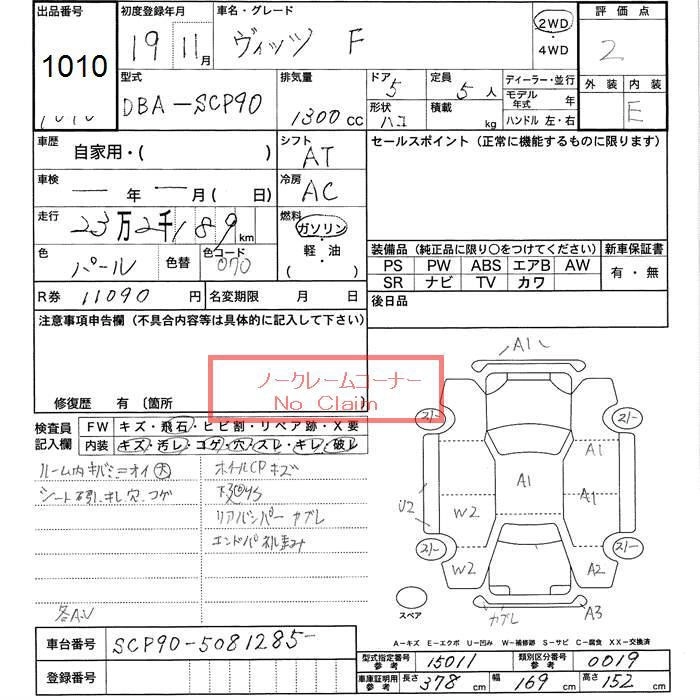 出品番号 初度登録年月 車名・グレード 評価点
1010 19 11月 ヴィッツ F 2WD 2
4WD
外装 内装
型式 排気量 ドア 5 定員 5人 ディーラー・並行
DBA-SCP90 1300CC 形状 ハコ 積載 kg モデル年式 年 E
ハンドル 左・右
車歴 自家用・( ) シフト AT セールスポイント(正常に機能するものに限ります)
車検 ー年 ー月(日) 冷房 AC
走行 23万2千189km 燃料 ガソリン
軽・油
( )
色 パール 色替 色コード 070 装備品(純正品に限り○をつけてください) 新車保証書
PS PW ABS エアB AW 有・無
SR ナビ TV カワ
R券 11090円 名変期限 月 日 後日品
注意事項申告欄(不具合内容等は具体的に記入して下さい)
ノークレームコーナー
No Claim
修復歴 有 (箇所 )
検査員記入欄 FW キズ・飛石・ヒビ割・リペア跡・X要
内装 キズ・汚レ・コゲ・穴・スレ・キレ・破レ
ルーム内キバミ=オイ(大) ホイルCPキズ
シート キレ 穴 コゲ
リアバンパー カブレ
各AU
A1
21- 21-
A1
A1 A1
U2 W2
21- 21-
W2 A2
スペア カブレ A3
A-キズ E-エクボ U-凹み W-補修跡 S-サビ C-腐食 XX-交換済
車台番号 SCP90-5081285-
登録番号
型式指定番号参考 15011 類別区分番号参考 0019
車庫証明用参考 長さ 378cm 幅 169cm 高さ 152cm